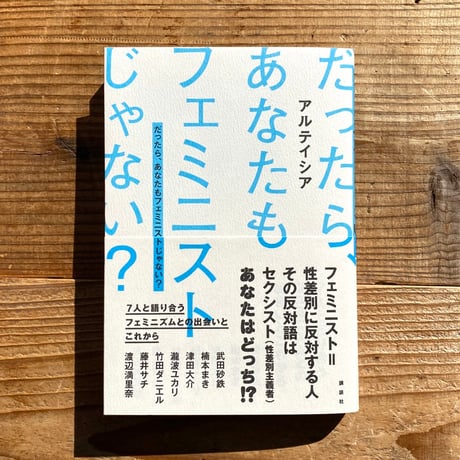 だったら、
あなたも
フェミニスト
じゃない?
アルテイシア
だったら、あなたもフェミニストじゃない?
フェミニスト=
性差別に反対する人
その反対語は
セクシスト(性差別主義者)
あなたはどっち!?
講談社
7人と語り合う
フェミニズムとの出会いと
これから
武田砂鉄
楠本まき
津田大介
瀧波ユカリ
竹田ダニエル
藤井サチ
渡辺満里奈